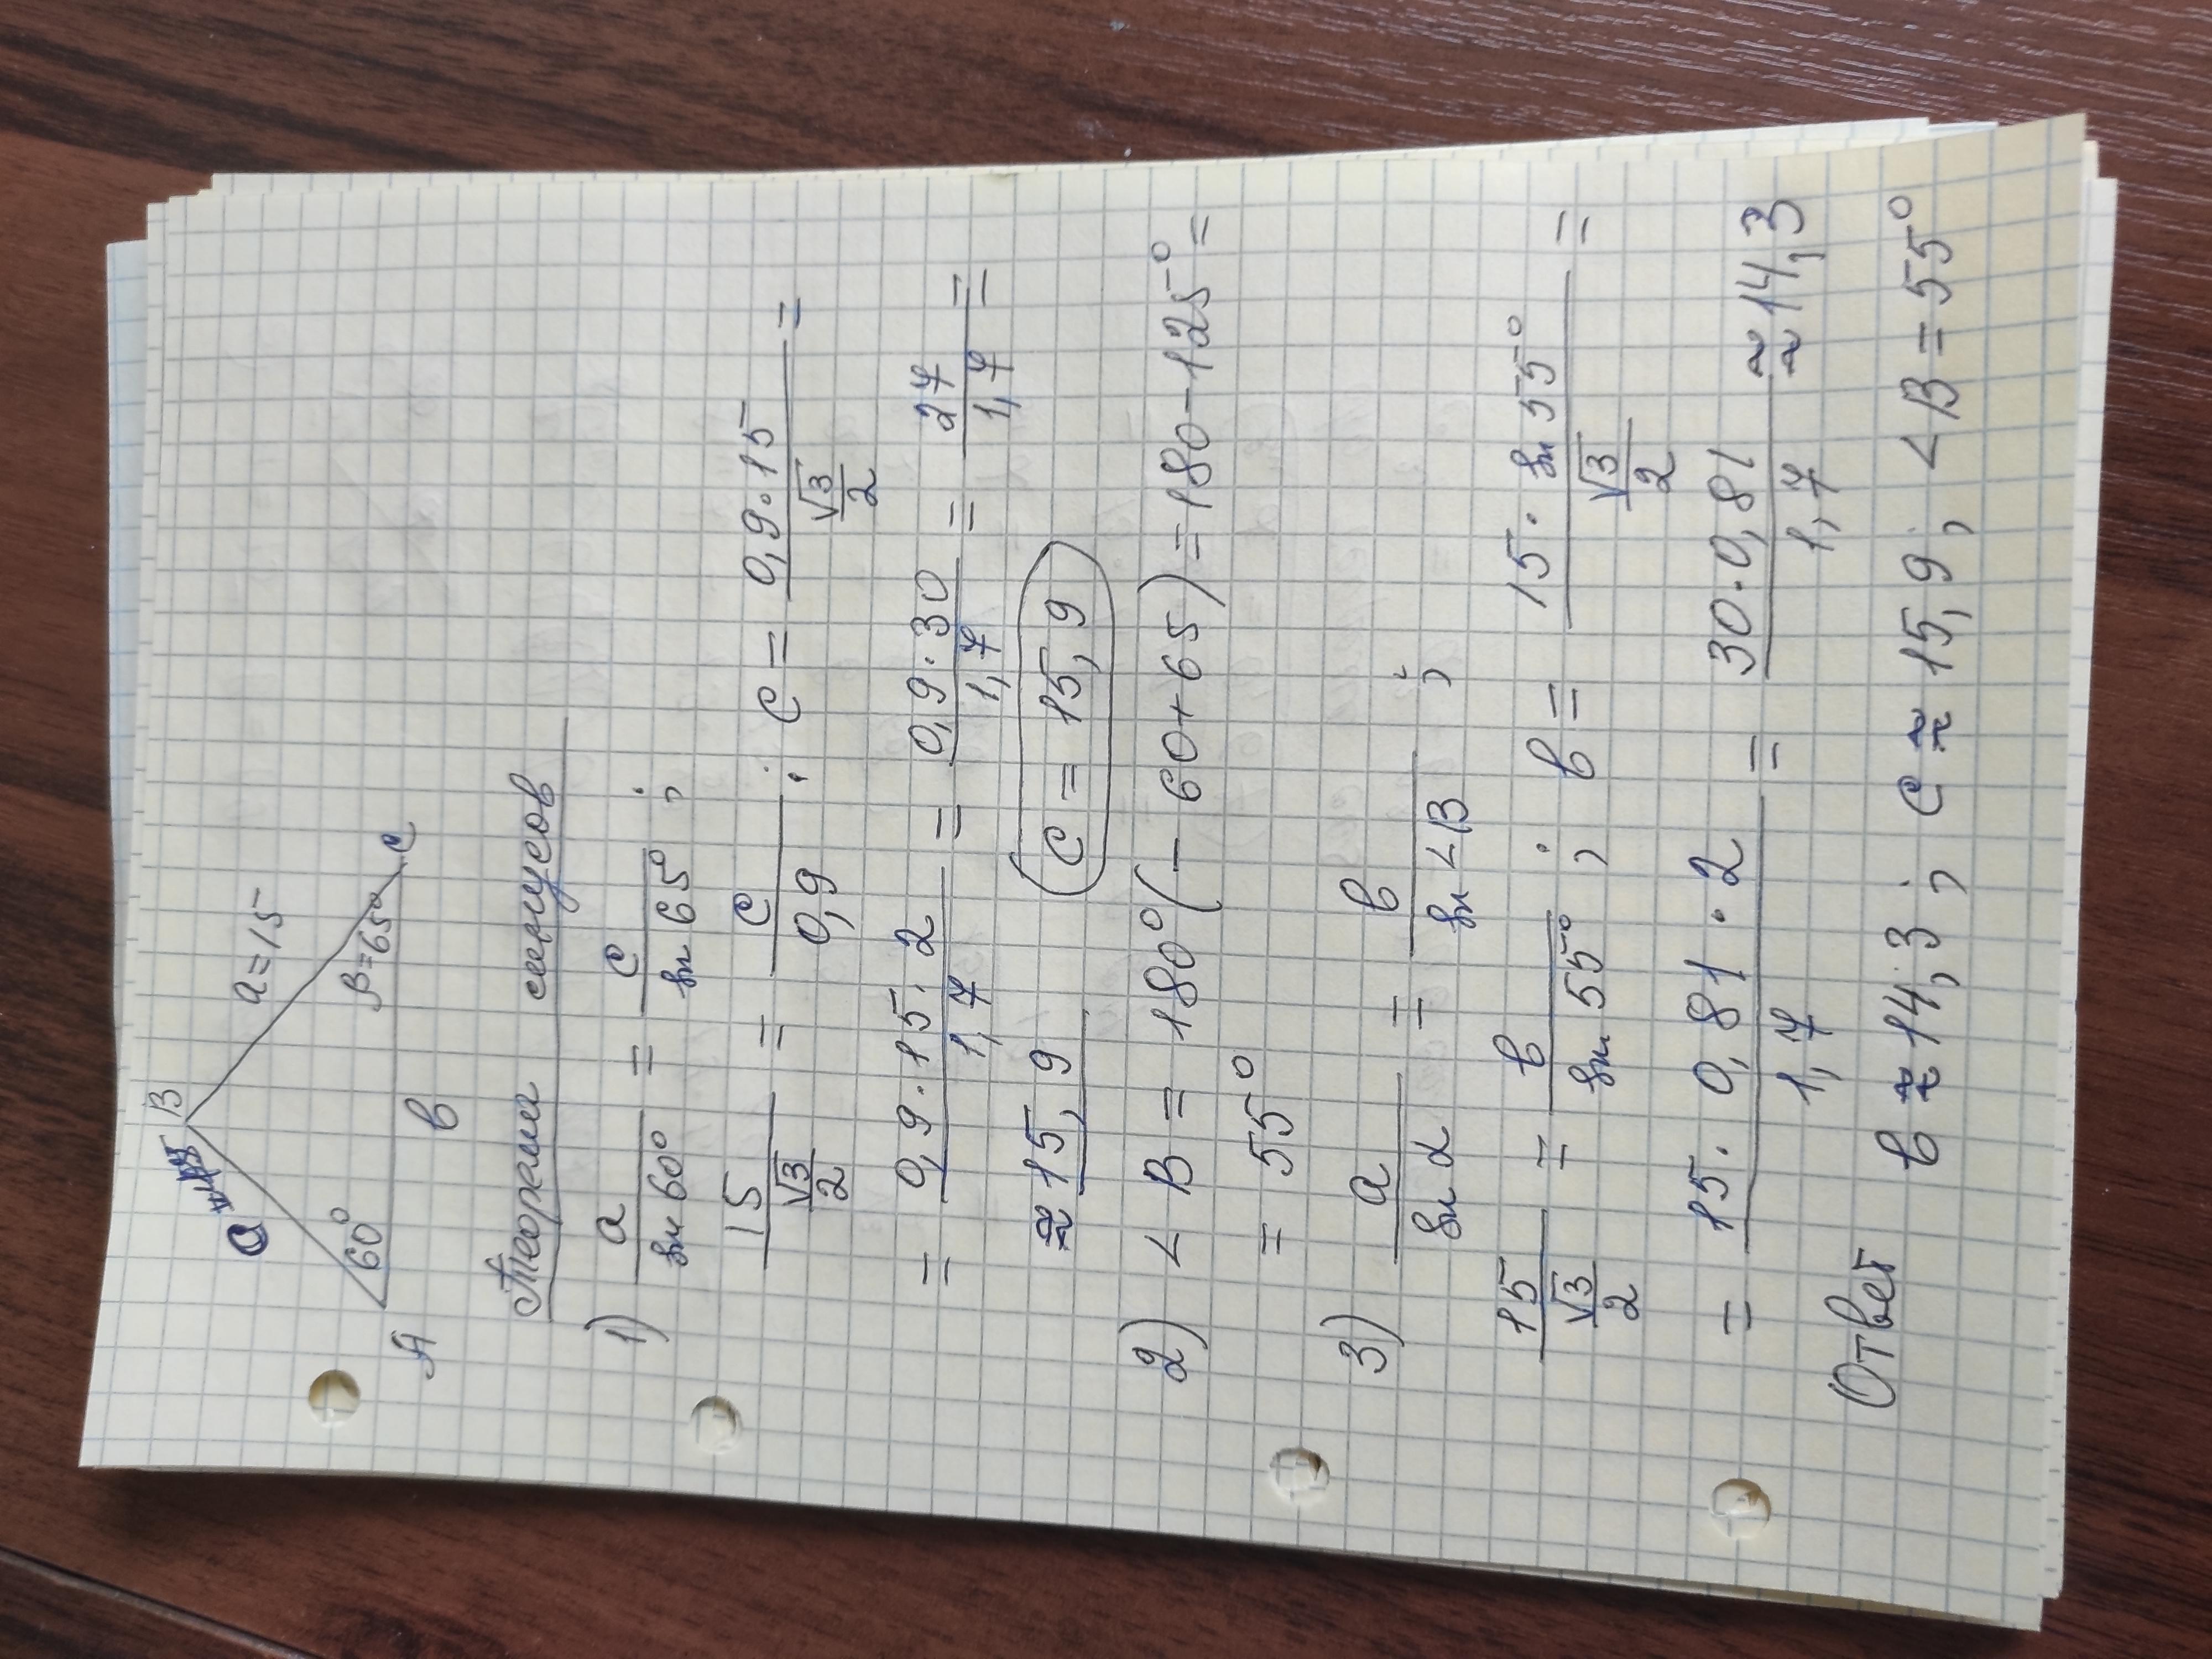 B
a=15
60°
β=65°
A
в
c
Теорема синусов
1) a/sin 60° = c/sin 65° ;
15/(√3/2) = c/0,9 ; c = 0,9·15/(√3/2) =
= 0,9·15·2/1,7 = 0,9·30/1,7 = 27/1,7 =
≈ 15,9 c = 15,9
2) <B = 180°(- 60+65) = 180-125° =
= 55°
3) a/sin α = в/sin <B ;
15/(√3/2) = в/sin 55° ; в = 15·sin 55°/(√3/2) =
= 15·0,81·2/1,7 = 30·0,81/1,7 ≈ 14,3
Ответ в ≈ 14,3 ; c ≈ 15,9 ; <B = 55°